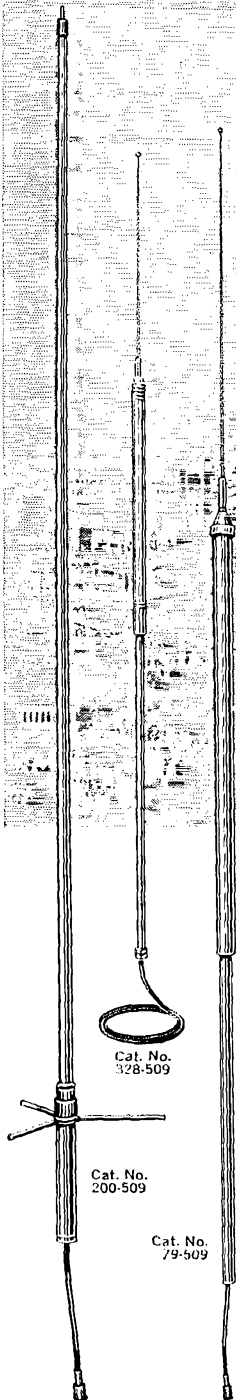 Cat. No.
328-509
Cat. No.
200-509
Cat. No.
79-509